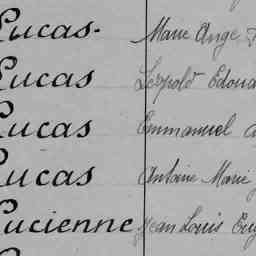 Lucas. Marie Ange
Lucas Léopold Edoua
Lucas Emmanuel
Lucas Antoine Marie
Lucienne Jean Louis Eug